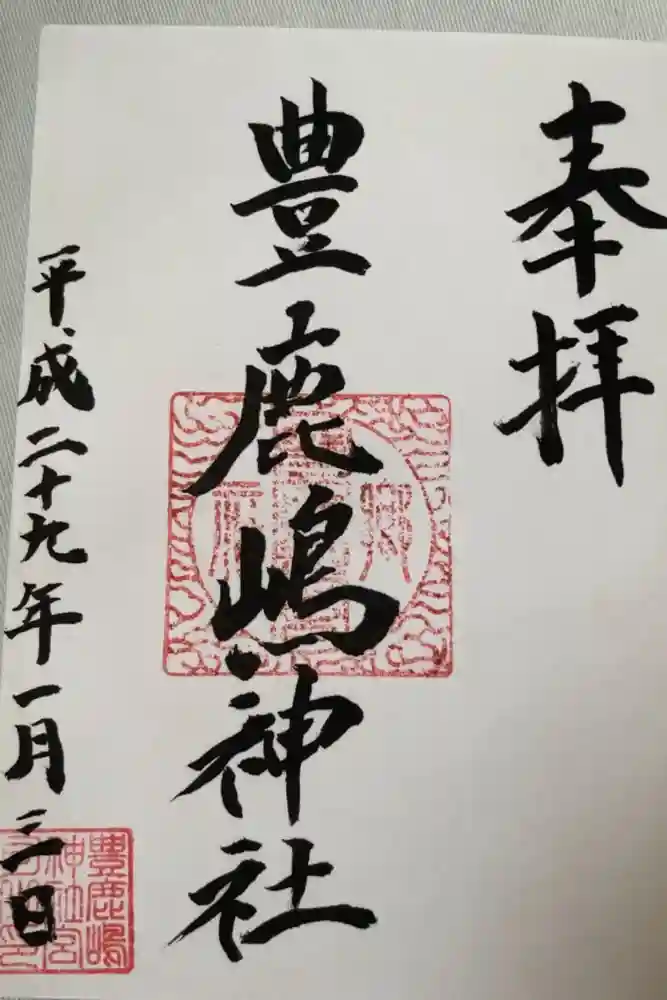 奉拝
豊鹿嶋神社
平成二十九年一月三日
豊鹿嶋
神社宮